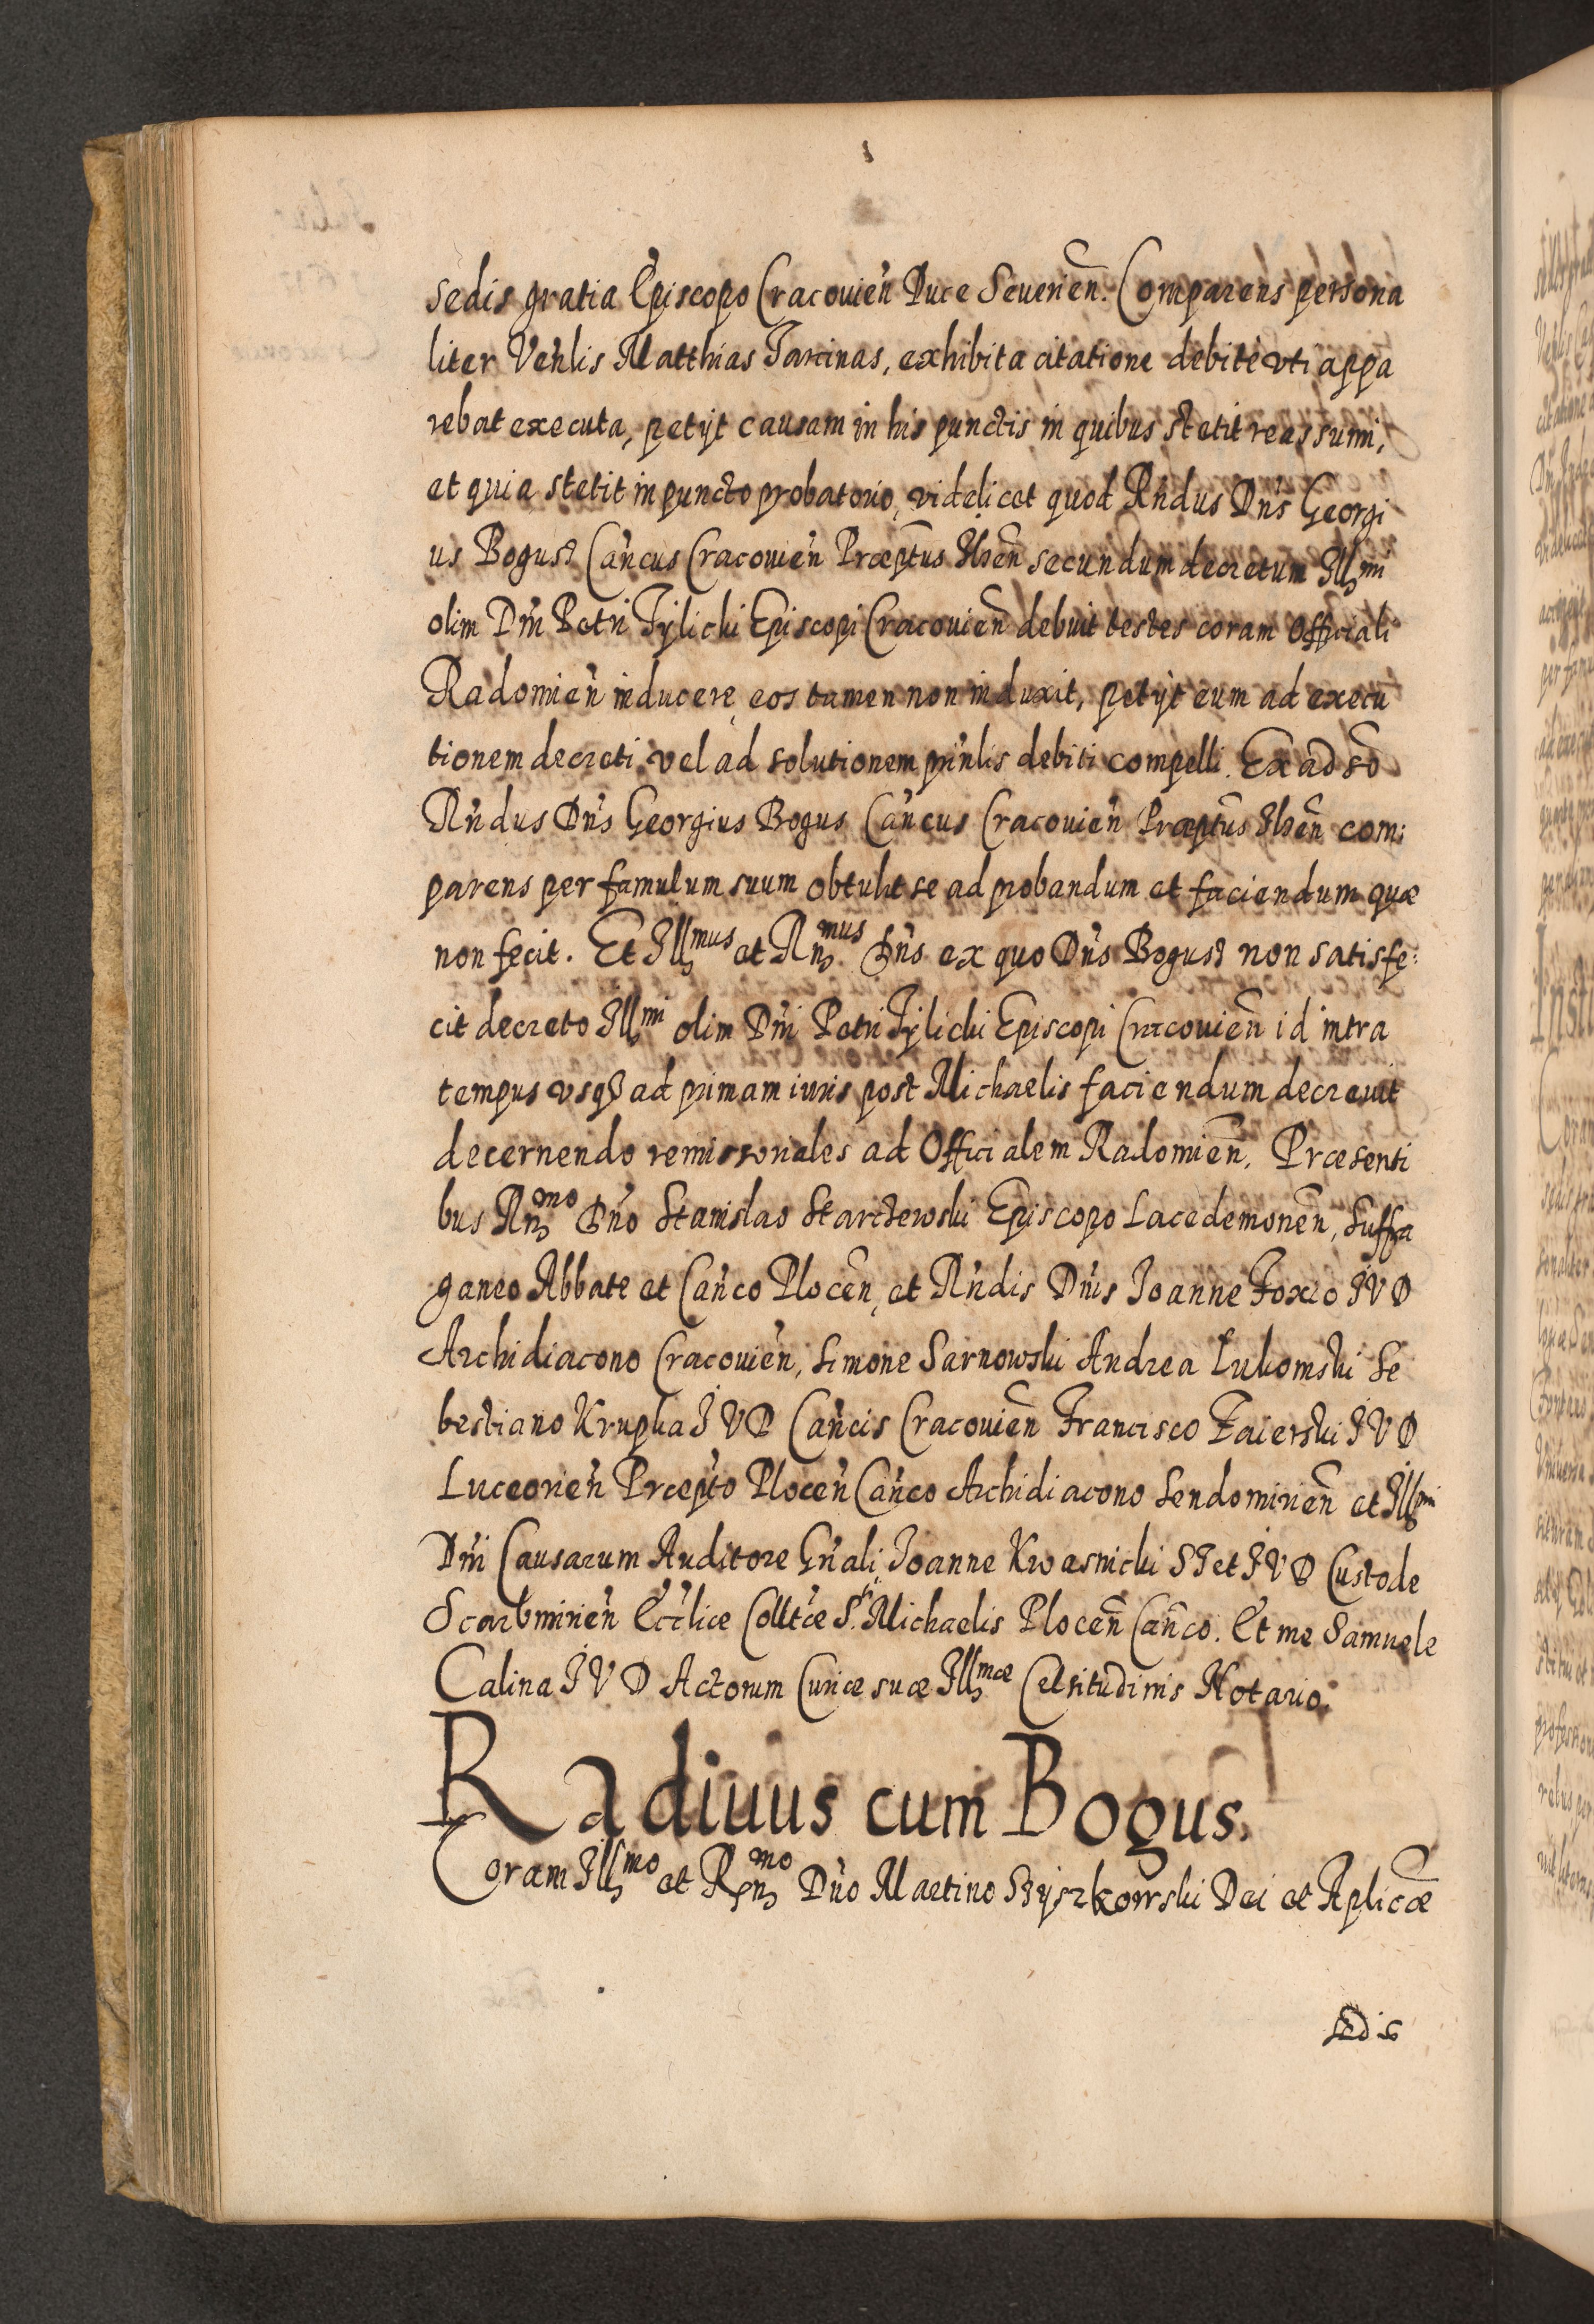 sedis gratia Episcopo Cracouien̄ Duce Seuerien̄. Comparens persona
liter Ven̄lis Matthias Jarcinas, exhibita citatione debitè vti appa
rebat executa, petÿt causam in his punctis in quibus stetit reassumi,
et quia stetit in puncto probatorio, videlicet quod Rn̄dus Dn̄s Georgi
us Bogusz Can̄cus Cracouien̄ Præptus Ilzen̄ secundum decretum Illmi
olim Dn̄i Petri Tylicki Episcopi Cracouien̄ debuit testes coram Officiali
Radomien̄ inducere, eos tamen non induxit, petÿt eum ad execu
tionem decreti, vel ad solutionem prin̄lis debiti compelli. Ex adso
Rn̄dus Dn̄s Georgius Bogus Can̄cus Cracouien̄ Præptus Ilzen̄ com:
parens per famulum suum obtulit se ad probandum et faciendum quæ
non fecit. Et Illmus et Rn̄mus Dn̄s ex quo Dn̄s Bogusz non satisfe:
cit decreto Illmi olim Dn̄i Petri Tylicki Episcopi Cracouien̄ id intra
tempus vsqz ad primam iuris post Michaelis faciendum decreuit
decernendo remissoriales ad Officialem Radomien̄. Præsenti
bus Rn̄mo Dn̄o Stanislao Starczewski Episcopo Lacedemonen̄, Suffra
ganeo Abbate et Can̄co Plocen̄, et Rn̄dis Dn̄is Ioanne Foxio I V D
Archidiacono Cracouien̄, Simone Sarnowski Andrea Lukomski Se
bestiano Krupka I V D Can̄cis Cracouien̄ Francisco Zaierski I V D
Luceorien̄ Præpto Plocen̄ Can̄co Archidiacono Sendomirien̄ et Illmi
Dn̄i Causarum Auditore Gn̄ali, Ioanne Kwasnicki S T et I V D Custode
Scarbmirien̄ Eccl̄ice Colltæ S.ti Michaelis Plocen̄ Can̄co. Et me Samuele
Calina I V D Actorum Curiæ suæ Illmæ Celsitudinis Notario.
Radiuus cum Bogus.
Coram Illmo et Rn̄mo Dn̄o Martino Szyszkowski Dei et Aplicæ
Sedis